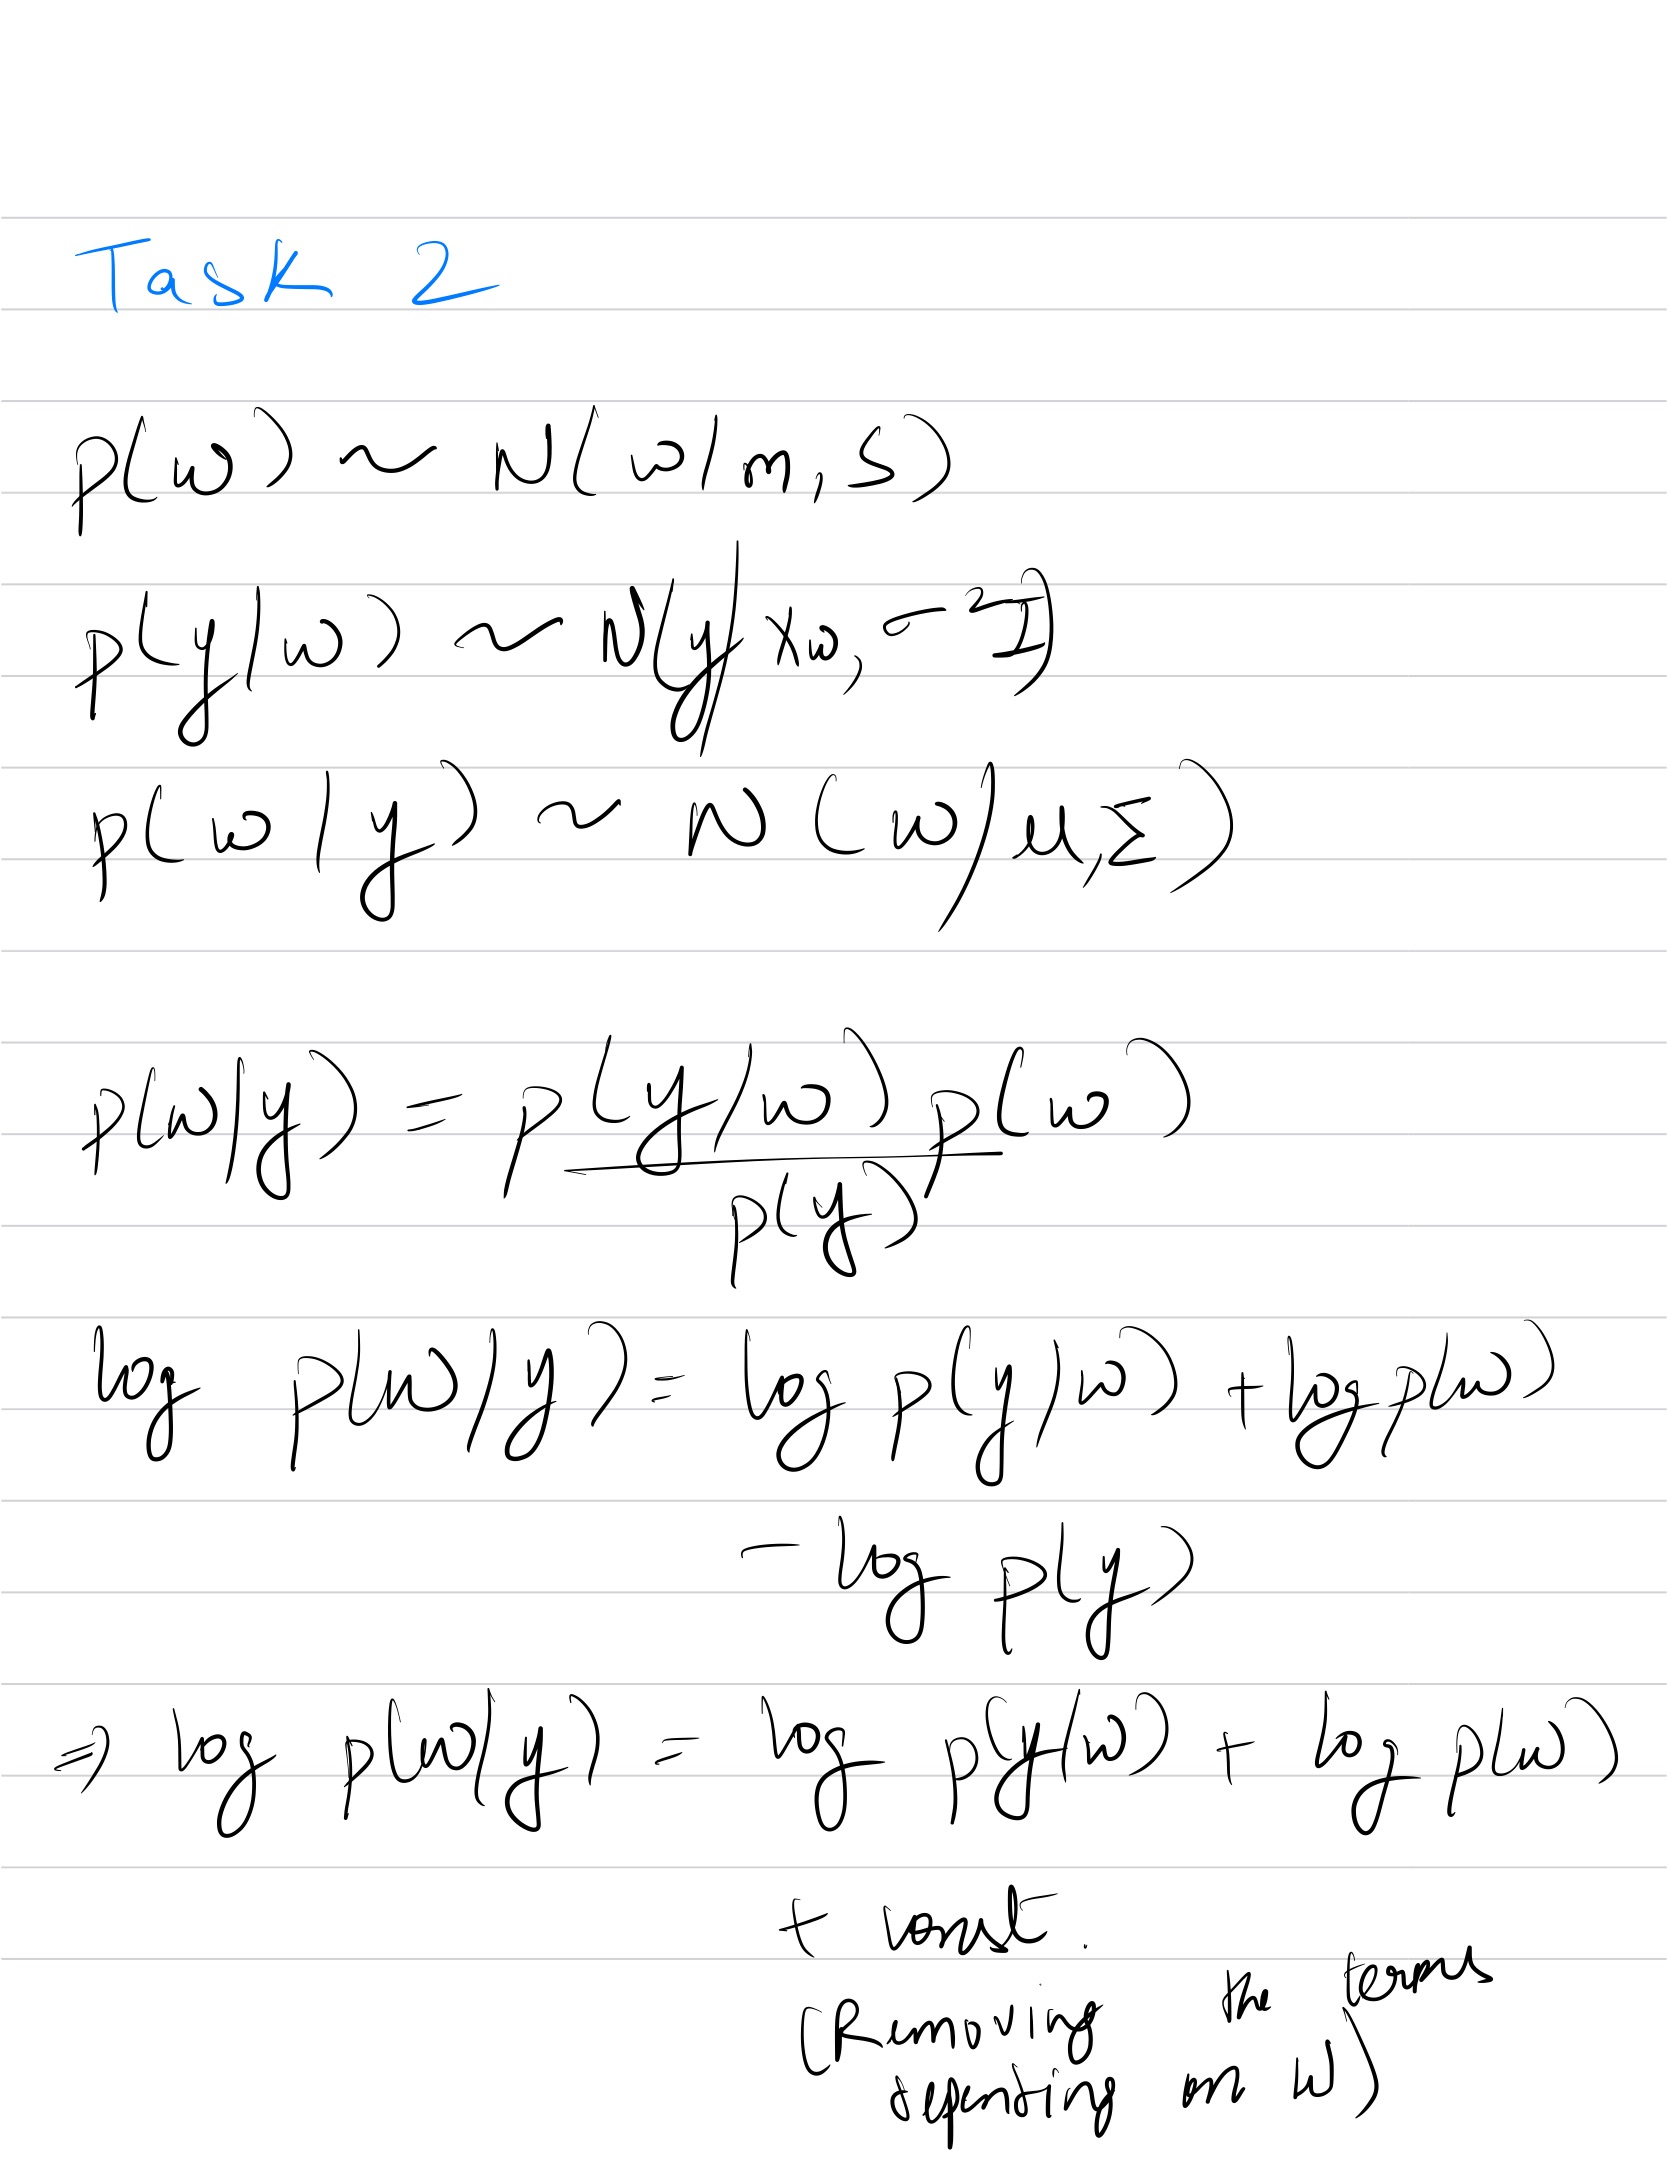 Task 2
p(w) ~ N(w|m, S)
p(y|w) ~ N(y|Xw, σ²I)
p(w|y) ~ N(w|μ, Σ)
p(w|y) = p(y|w) p(w)
p(y)
log p(w|y) = log p(y|w) + log p(w)
- log p(y)
⇒ log p(w|y) = log p(y|w) + log p(w)
+ const.
(Removing the terms
depending on w)